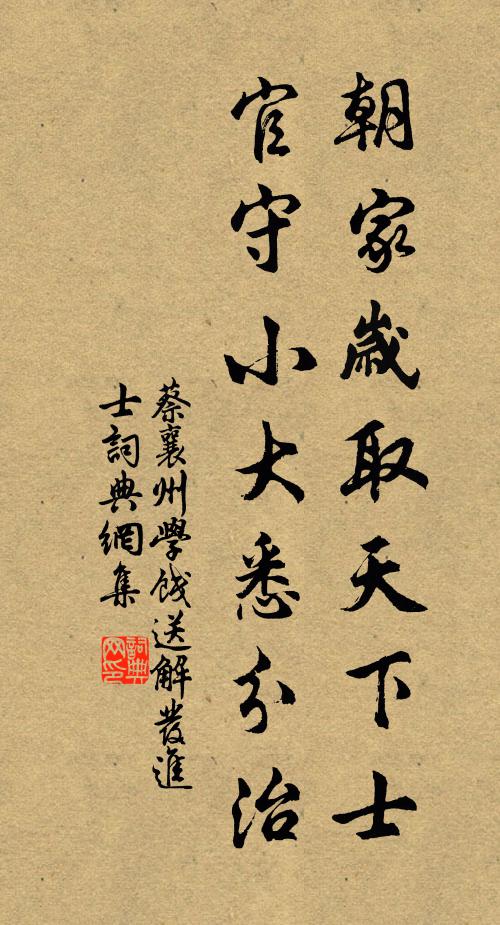 朝家歲取天下士
官守小大悉分治
蔡襄州學餞送解發進
士詞典網集
詞典
网印